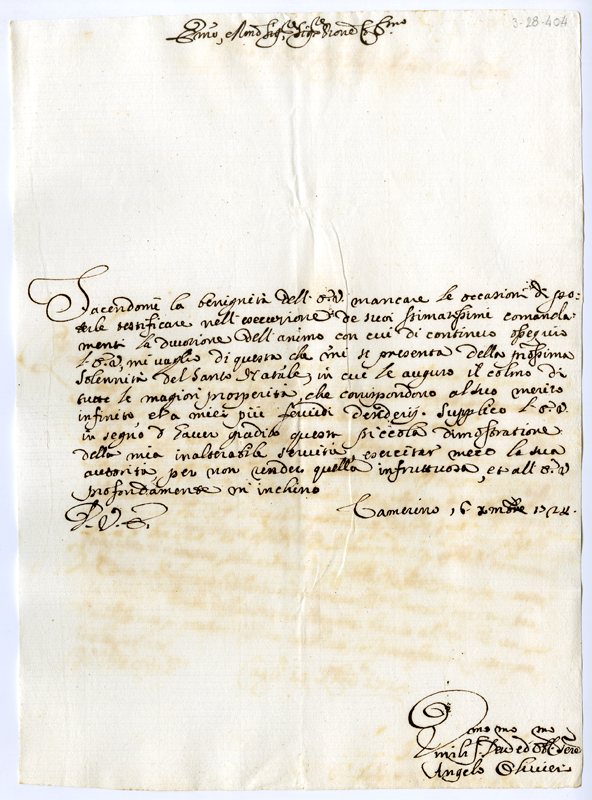 3-28-404
Emo, e Rmo Sigr, Sigr Prone Colmo
Facendomi la benignità dell' E.V. mancare le occasioni di po=
terle testificare nell' esecuzione de suoi stimatissimi comanda
menti la divozione dell' animo con cui di continuo ossequio
l' E.V., mi vaglio di questa che mi si presenta della prossima
Solennità del Santo Natale, in cui le auguro il colmo di
tutte le magiori prosperità, che corrispondono al suo merito
infinito et a miei più fervidi desiderij. Supplico l' E.V.
in segno d' haver gradito questa piccola dimostrazione
della mia inalterabile servitù esercitar meco la sua
autorità per non render quella infruttuosa, et all' E.V.
profondamente m' inchino
D. V. E.
Camerino 16 Xmbre 1724.
mo mo mo
Umili Dev ed Obl Sere
Angelo Olivieri